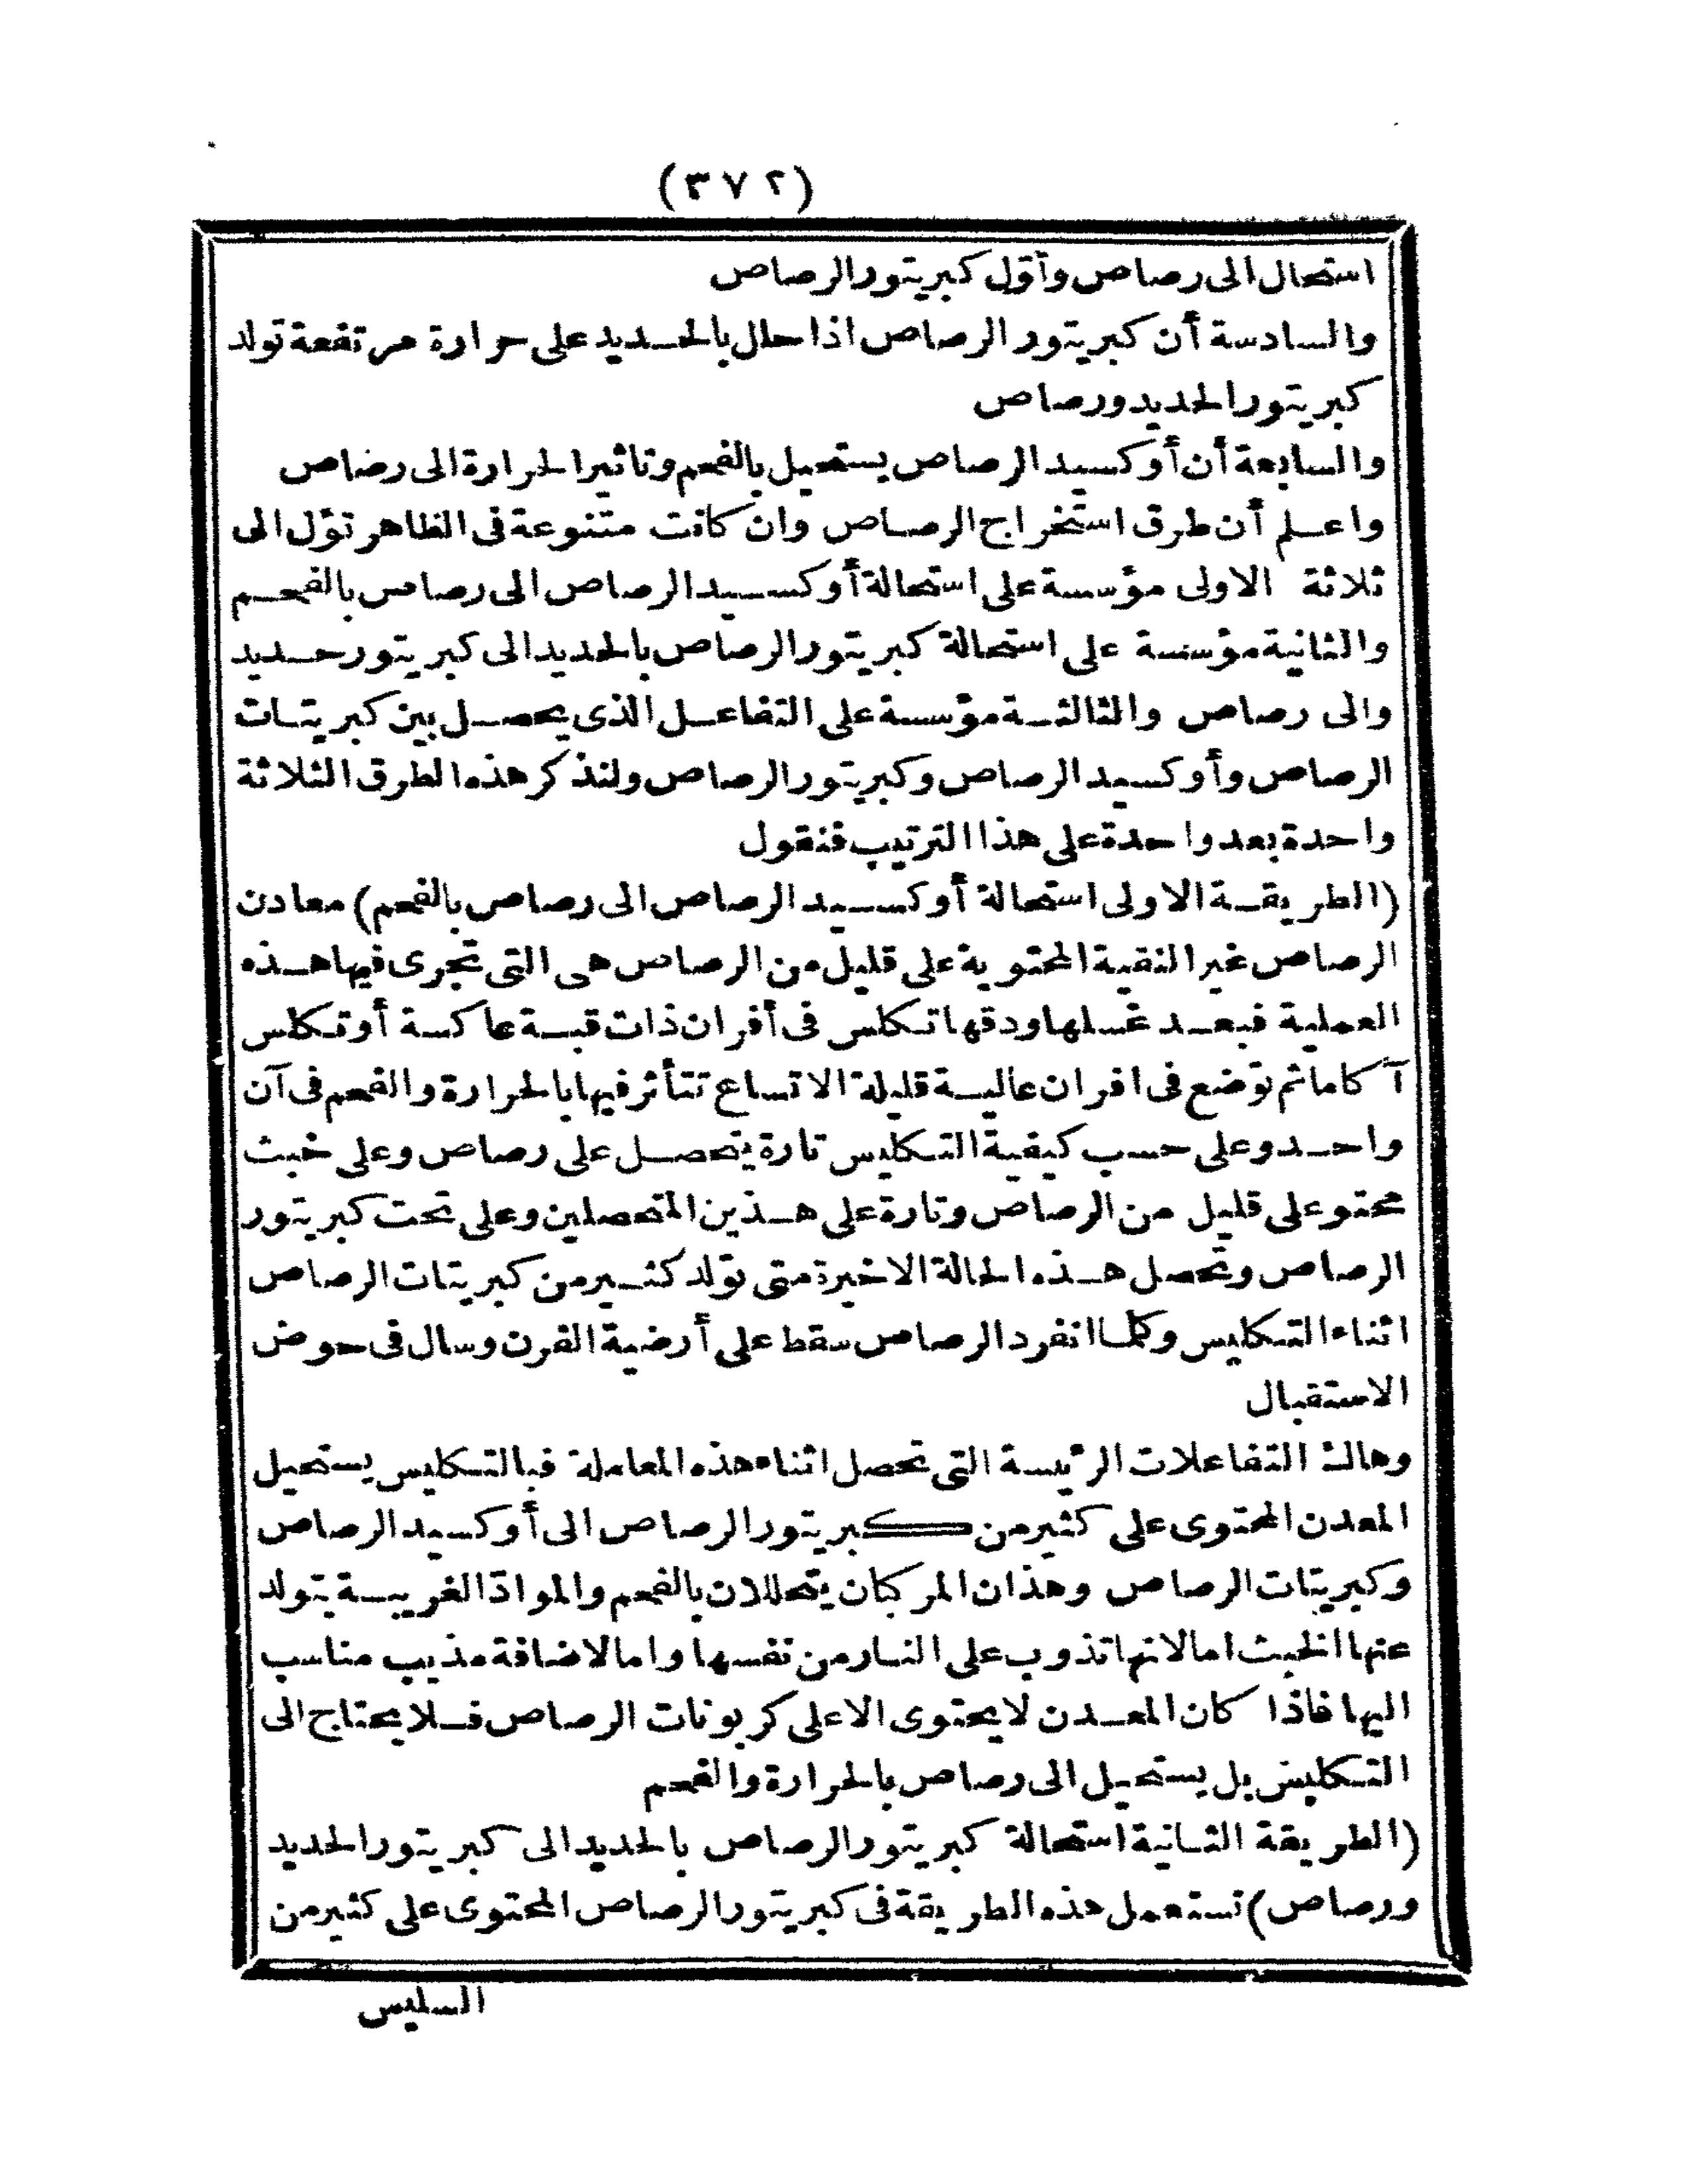 (٣٧٢)
استحال الى رصاص وأوّل كبريتور الرصاص
والسادسة أن كبريتور الرصاص اذا حلل بالحديد على حرارة مرتفعة تولد
كبريتور الحديد ورصاص
والسابعة أن أوكسيد الرصاص يستحيل بالفحم وتاثير الحرارة الى رصاص
واعلم أن طرق استخراج الرصاص وان كانت متنوعة فى الظاهر تؤل الى
ثلاثة الاولى مؤسسة على استحالة أوكسيد الرصاص الى رصاص بالفحم
والثانية مؤسسة على استحالة كبريتور الرصاص بالحديد الى كبريتور حديد
والى رصاص والثالثة مؤسسة على التفاعل الذى يحصل بين كبريتات
الرصاص وأوكسيد الرصاص وكبريتور الرصاص ولنذكر هذه الطرق الثلاثة
واحدة بعد واحدة على هذا الترتيب فنقول
(الطريقة الاولى استحالة أوكسيد الرصاص الى رصاص بالفحم) معادن
الرصاص غير النقية المحتوية على قليل من الرصاص هى التى تجرى فيها هذه
العملية فبعد غسلها ودقها تكلس فى أفران ذات قبة عاكسة أو تكلس
آكاما ثم توضع فى افران عالية قليلة الاتساع تتأثر فيها بالحرارة والفحم فى آن
واحد وعلى حسب كيفية التكليس تارة يتحصل على رصاص وعلى خبث
محتو على قليل من الرصاص وتارة على هذين المتحصلين وعلى تحت كبريتور
الرصاص وتحصل هذه الحالة الاخيرة متى تولد كثير من كبريتات الرصاص
اثناء التكليس وكلما انفرد الرصاص سقط على أرضية الفرن وسال فى حوض
الاستقبال
وهاك التفاعلات الرئيسة التى تحصل اثناء هذه المعاملة فبالتكليس يستحيل
المعدن المحتوى على كثير من كبريتور الرصاص الى أوكسيد الرصاص
وكبريتات الرصاص وهذان المركبان يتحللان بالفحم والموادّ الغريبة يتولد
عنها الخبث اما لانها تذوب على النار من نفسها واما لاضافة مذيب مناسب
اليها فاذا كان المعدن لا يحتوى الا على كربونات الرصاص فلا يحتاج الى
التكليس بل يستحيل الى رصاص بالحرارة والفحم
(الطريقة الثانية استحالة كبريتور الرصاص بالحديد الى كبريتور الحديد
ورصاص) تستعمل هذه الطريقة فى كبريتور الرصاص المحتوى على كثير من
السليس